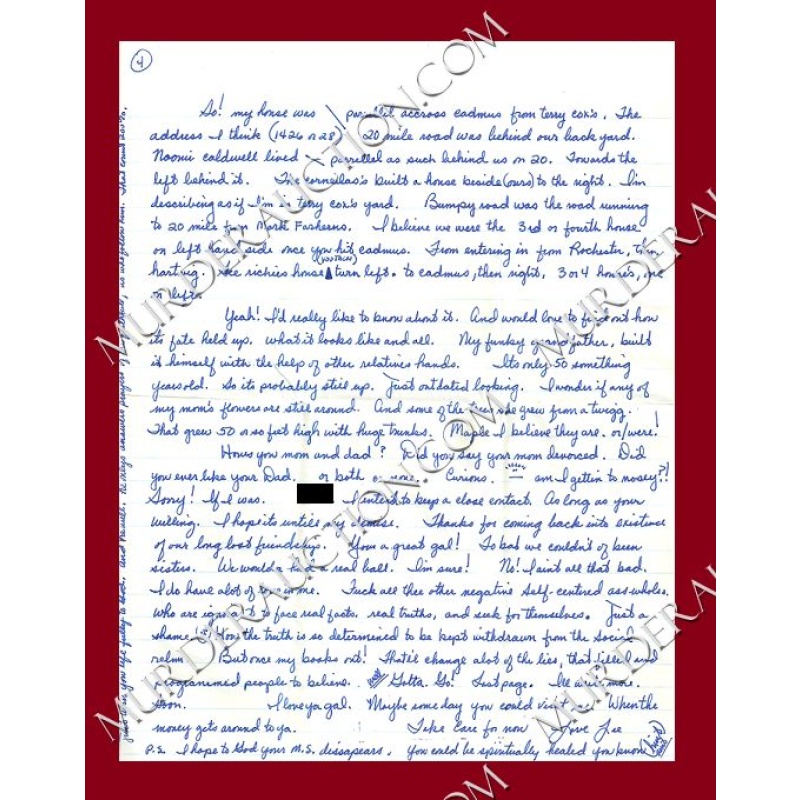 4
So! my house was parrellel accross cadmus from terry cox's. The
address I think (1426 or 28) 20 mile road was behind our back yard.
Naomi caldwell lived parrellel as such behind us on 20. Towards the
left behind it. The built a house beside (ours) to the right. I'm
describing as if I'm in terry cox's yard. Bumpsy road was the road running
to 20 mile from Mark Fosherns. I believe we were the 3rd or fourth house
on left hand side once you hit cadmus. From entering in from Rochester, turn
hartwig. the richies house turn left. to cadmus, then right, 3 or 4 homes,
on left.
Yeah! I'd really like to know about it. And would love to how
its fate held up. what it looks like and all. My funky grandfather, built
it himself with the help of other relatives hands. Its only 50 something
years old. So its probably still up. Just outdated looking. I wonder if any of
my mom's flowers are still around. And some of the trees she grew from a twigg.
That grew 50 or so feet high with huge trunks. Maple I believe they are. or/were!
Hows you mom and dad? Did you say your mom devorced. Did
you ever like your Dad. or both or none. Curious. am I gettin to nosey?!
Sorry! If I was. I intend to keep a close contact. As long as your
willing. I hope its untill my demise. Thanks for coming back into existence
of our long lost friendship. Your a great gal! To bad we couldn't of been
sisters. We woulda had a real ball. I'm sure! No! I aint all that bad.
I do have alot of in me. Fuck all thee other negative self-centred ass-wholes.
Who are to face real facts. real truths, and seek for themselves. Just a
shame! How the truth is so determined to be kept withdrawn from the social
relm But once my books out! That'll change alot of the lies, that and
programmed people to believe. Gotta. Go! Last page. I'll write more.
Soon. I love ya gal. Maybe some day you could visit me. When the
money gets around to ya. Take care for now Love Lee
P.S. I hope to God your M.S. dissapears. you could be spiritually healed you know
MURDERAUCTION.COM